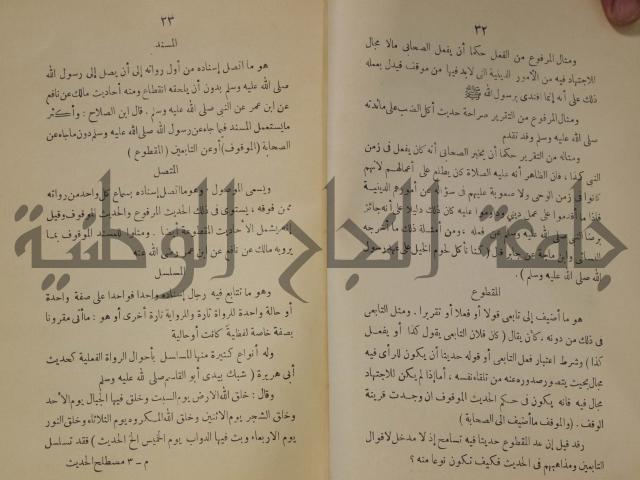 ٣٢
ومثال المرفوع من الفعل حكما أن يفعل الصحابى مالا مجال
للاجتهاد فيه من الأمور الدينية التى لابد فيها من موقف فيدل بعمله
ذلك على أنه إنما اقتدى برسول الله ﷺ
ومثال المرفوع من التقرير صراحة حديث أكل الضب على مائدته
صلى الله عليه وسلم وقد تقدم
ومثاله من التقرير حكما أن يخبر الصحابى أنه كان يفعل فى زمن
النبى كذا ، فان الظاهر أنه عليه الصلاة كان يطلع على أعمالهم لأنهم
كانوا فى زمن الوحى ولا صعوبة عليهم فى سؤاله عن أمورهم الدينية
فاذا ما أقدموا على عمل دينى وداوموا عليه كان ذلك دليلا على أنه جائز
برضا النبى صلى الله عليه وسلم عن فعله ، ومن أمثلة ذلك ما أخرجه
النسائى وابن ماجة عن جابر قال ( كنا نأكل لحوم الخيل على عهد رسول
الله صلى الله عليه وسلم ) .
المقطوع
هو ما أضيف إلى تابعى قولا أو فعلا أو تقريرا . ومثل التابعى
فى ذلك من دونه ، كأن يقال ( كان فلان التابعى يقول كذا أو يفعل
كذا ) وشرط اعتبار فعل التابعى أو قوله حديثا أن يكون للرأى فيه
مجال بحيث يتصور صدوره عنه من تلقاء نفسه ، أما إذا لم يكن للاجتهاد
مجال فيه فانه يكون فى حكم الحديث الموقوف ان وجدت قرينة
الوقف . (والموقوف ما أضيف الى الصحابة )
رقد قيل إن عد المقطوع حديثا فيه تسامح إذ لا مدخل لاقوال
التابعين ومذاهبهم فى الحديث فكيف تكون نوعا منه ؟
٢٣
المسند
هو ما اتصل إسناده من أول رواته إلى أن يصل إلى رسول الله
صلى الله عليه وسلم بدون أن يلحقه انقطاع ومنه أحاديث مالك عن نافع
عن ابن عمر عن النبى صلى الله عليه وسلم . قال ابن الصلاح : وأكثر
ما يستعمل المسند فيما جاء عن رسول الله صلى الله عليه وسلم دون ما جاء عن
الصحابة (الموقوف) أو عن التابعين ( المقطوع )
المتصل
ويسمى الموصول : وهو ما اتصل إسناده بسماع كل واحد من رواته
ممن فوقه ، يستوى فى ذلك الحديث المرفوع والحديث الموقوف وقيل
إنه يشمل الأحاديث المقطوعة أيضا . ومثاله المسند الموقوف بما
يرويه مالك عن نافع عن ابن عمر رضى الله عنه
المسلسل
وهو ما تتابع فيه رجال إسناده واحدا فواحدا على صفة واحدة
أو حالة واحدة للرواة تارة وللرواية تارة أخرى أو هو : ما أتى مقرونا
بصفة خاصة لفظية كانت أو حالية
وله أنواع كثيرة منها المسلسل بأحوال الرواة الفعلية كحديث
أبى هريرة ( شبك بيدى أبو القاسم صلى الله عليه وسلم
وقال : خلق الله الارض يوم السبت وخلق فيها الجبال يوم الأحد
وخلق الشجر يوم الاثنين وخلق المكروه يوم الثلاثاء وخلق النور
يوم الاربعاء وبث فيها الدواب يوم الخميس الخ الحديث ) فقد تسلسل
م ــ ٣ مصطلح الحديث
جامعة النجاح الوطنية